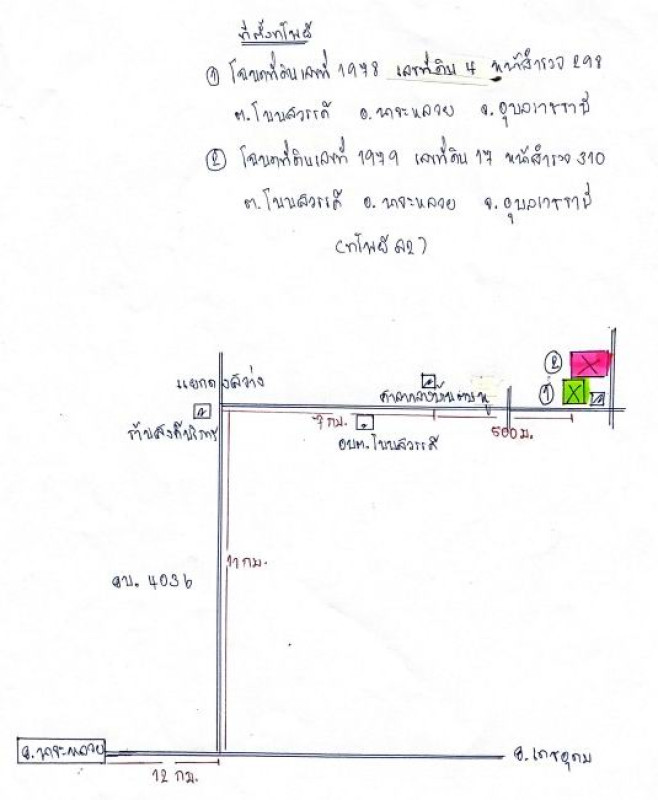 ที่ตั้งทรัพย์
① โฉนดที่ดินเลขที่ 1978 เลขที่ดิน 4 หน้าสำรวจ 298
ต.โนนสวรรค์ อ.นาจะหลวย จ.อุบลราชธานี
② โฉนดที่ดินเลขที่ 1979 เลขที่ดิน 17 หน้าสำรวจ 310
ต.โนนสวรรค์ อ.นาจะหลวย จ.อุบลราชธานี
②
แยกดงสว่าง
①
ศาลากลางบ้าน
7 กม.
500 ม.
อบต.โนนสวรรค์
11 กม.
อบ. 4036
อ.นาจะหลวย
อ.เดชอุดม
12 กม.